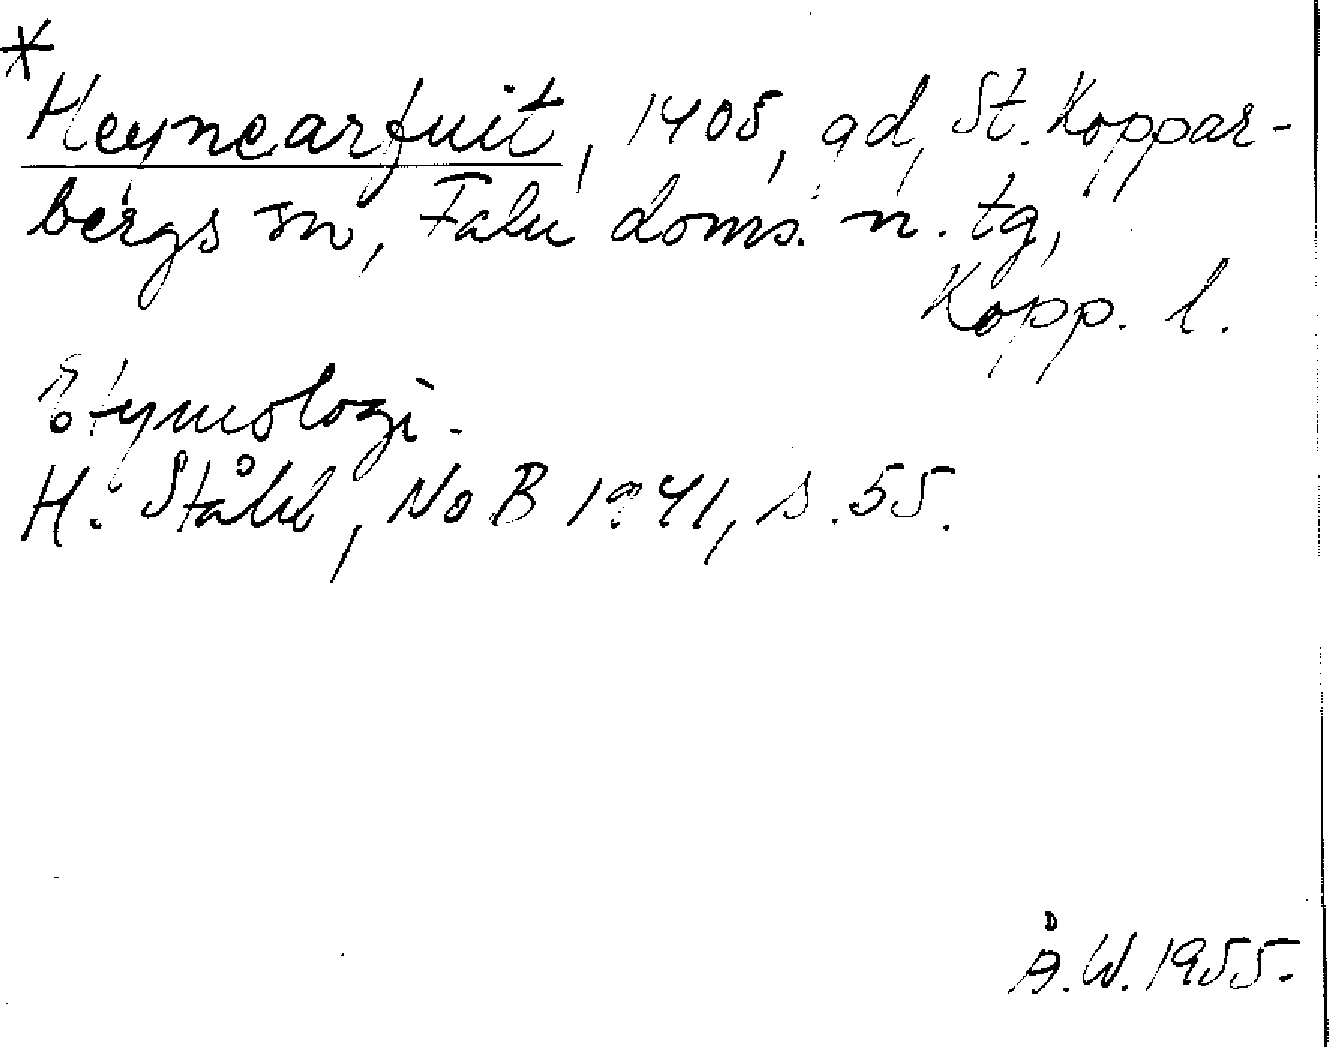 * Heynearfuit, 1405, gd, St. Koppar-
bergs sn, Falu doms. n. tg,
Kopp. l.
Etymologi.
H. Ståhl, NoB 1941, s. 55.
Å.W. 1955.